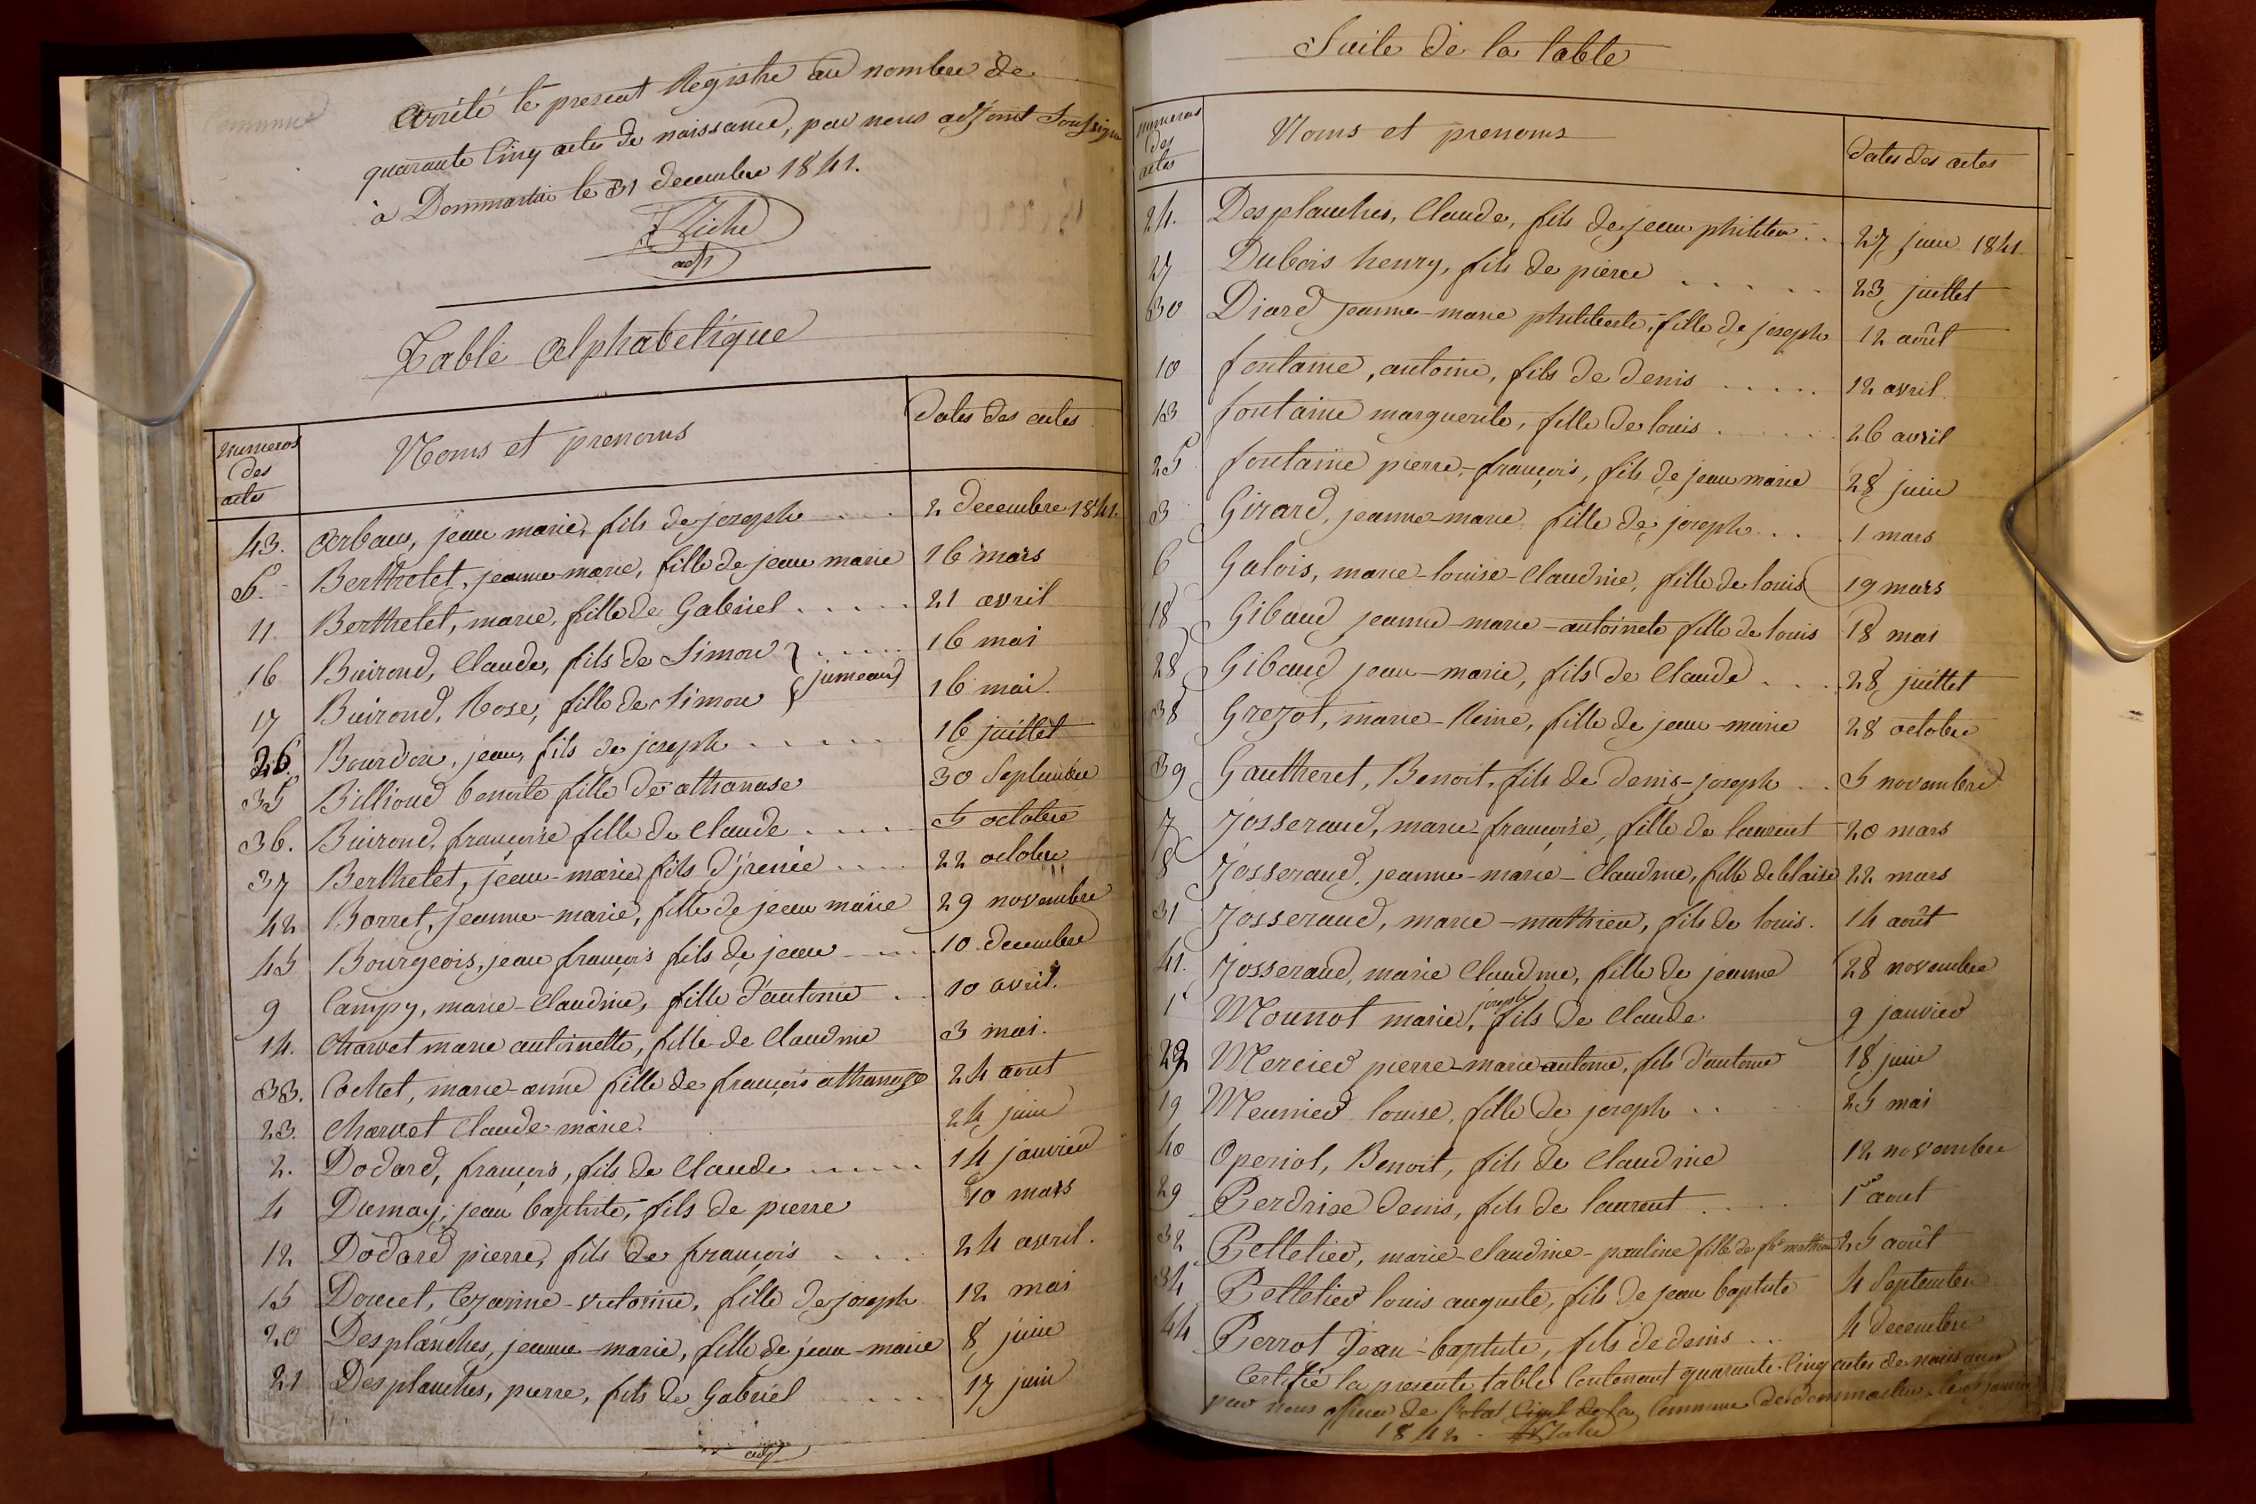 arrêté le present Registre au nombre de
quarante Cinq actes de naissance, par nous adjoint Soussigné
à Dommartin le 31 decembre 1841.
adj
Table alphabetique
numeros des actes Noms et prenoms Dates des actes
43. Arbau, jean marie, fils de joseph .... 2 decembre 1841.
5. Berthelet, jeanne-marie, fille de jean marie 16 mars
11 Berthelet, marie, fille de Gabriel ..... 21 avril
16 Buirond, Claude, fils de Simon } ..... 16 mai
17 Buirond, Rose, fille de Simon { jumeaux 16 mai.
26. Bourdon, jean, fils de joseph ..... 16 juillet
35 Billioud benoite fille de athanase 30 Septembre
36. Buirond, françoise fille de Claude ..... 5 octobre
37 Berthelet, jean-marie fils d'jrenée .... 22 octobre
42 Borret, jeanne-marie, fille de jean marie 29 novembre
45 Bourgeois, jean françois fils de jean .... 10 decembre
9 Campy, marie-Claudine, fille d'antoine .. 10 avril.
14. Charvet marie antoinette, fille de Claudine 3 mai.
33. Cochet, marie-anne fille de françois athanase 24 aout
23. Charvet Claude-marie. 24 juin
2. Dodard, françois, fils de Claude ..... 14 janvier
4 Dumay, jean baptiste, fils de pierre 10 mars
12 Dodard pierre, fils de françois .... 24 avril.
15 Doucet, Cezarine-victorine, fille de joseph 12 mai
20 Desplanches, jeanne-marie, fille de jean-marie 8 juin
21 Desplanches, pierre, fils de Gabriel .... 17 juin
adj
Suite de la table
numeros des actes Noms et prenoms Dates des actes
24. Desplanches, Claude, fils de jean philibert .. 27 juin 1841
27 Dubois henry, fils de pierre ..... 23 juillet
30 Diard jeanne-marie philiberte, fille de joseph 12 août
10 fontaine, antoine, fils de denis ..... 12 avril.
13 fontaine marguerite, fille de louis ..... 26 avril
25 fontaine pierre-françois, fils de jean marie 28 juin
3 Girard, jeanne-marie fille de joseph ... 1 mars
6 Galois, marie-louise-Claudine, fille de louis 19 mars
18 Gibaud jeanne-marie-antoinete fille de louis 18 mai
28 Gibaud jean-marie, fils de Claude .... 28 juillet
38 Grezot, marie-Reine, fille de jean-marie 28 octobre
39 Gautheret, Benoit, fils de denis-joseph .. 5 novembre
7 Josserand, marie-françoise, fille de laurent 20 mars
8 Josserand, jeanne-marie-Claudine, fille de blaise 22 mars
31 Josserand, marie-mathieu, fils de louis. 14 août
41. Josserand, marie Claudine, fille de jeanne 28 novembre
1 Mounot marie joseph, fils de Claude 9 janvier
22 Mercier pierre-marie antoine, fils d'antoine 18 juin
19 Meunier louise, fille de joseph .. 25 mai
40 Operiol, Benoit, fils de Claudine 12 novembre
29 Perdrise denis, fils de laurent ..... 1er aout
32 Pelletier, marie-claudine-pauline fille de mathieu 25 août
34 Pelletier louis auguste, fils de jean baptiste 4 Septembre
44 Perrot Jean-baptiste, fils de denis ... 4 decembre
Certifie la presente table Contenant quarante-Cinq actes de naissance
par nous officier de l'etat Civil de la Commune de dommartin, le janvier
1842.